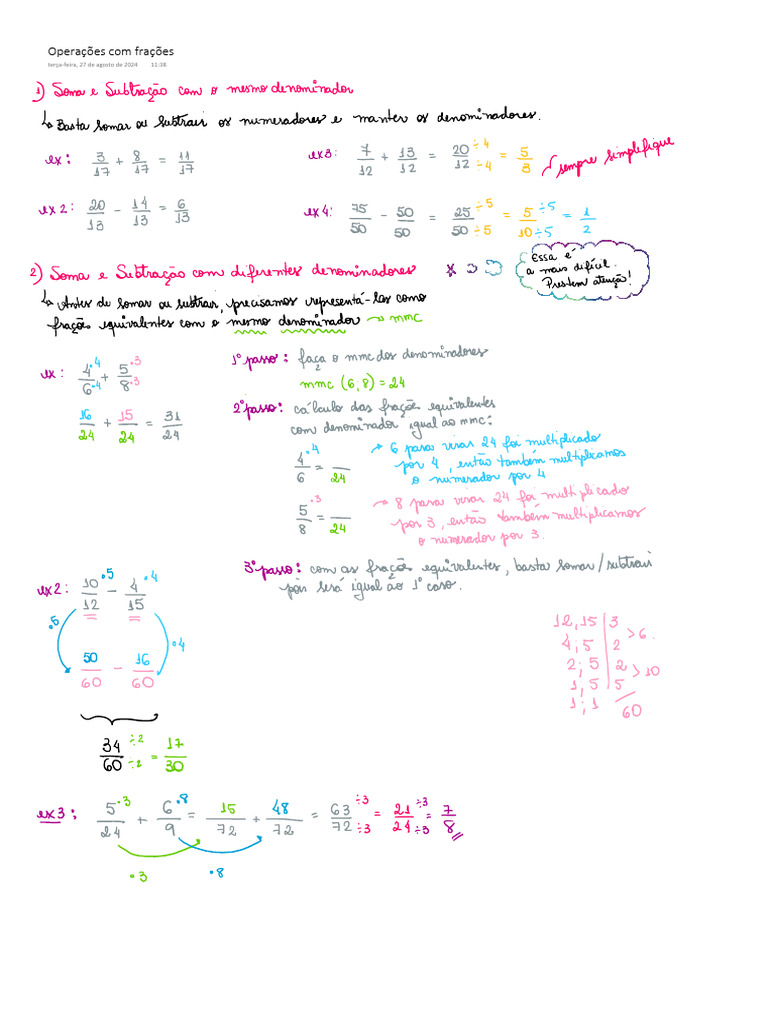 Operações com frações
terça-feira, 27 de agosto de 2024 11:38
1) Soma e Subtração com o mesmo denominador
↳ Basta somar ou subtrair os numeradores e manter os denominadores.
ex: 3/17 + 8/17 = 11/17
ex3: 7/12 + 13/12 = 20/12 ÷4/÷4 = 5/3 sempre simplifique
ex2: 20/13 - 14/13 = 6/13
ex4: 75/50 - 50/50 = 25/50 ÷5/÷5 = 5/10 ÷5/÷5 = 1/2
Essa é
a mais difícil.
Prestem atenção!
2) Soma e Subtração com diferentes denominadores
↳ Antes de somar ou subtrair, precisamos representá-las como
frações equivalentes com o mesmo denominador → mmc
ex: 4/6 ·4/·4 + 5/8 ·3/·3
16/24 + 15/24 = 31/24
1º passo: faça o mmc dos denominadores
mmc (6,8) = 24
2º passo: cálculo das frações equivalentes
com denominador igual ao mmc:
4/6 ·4 = __/24
→ 6 para virar 24 foi multiplicado
por 4, então também multiplicamos
o numerador por 4
5/8 ·3 = __/24
→ 8 para virar 24 foi multiplicado
por 3, então também multiplicamos
o numerador por 3.
3º passo: com as frações equivalentes, basta somar/subtrair
pois será igual ao 1º caso.
ex2: 10/12 ·5 - 4/15 ·4
·5 ·4
50/60 - 16/60
34/60 ÷2/÷2 = 17/30
12,15 | 3
4,5 | 2 >6.
2;5 | 2 >10
1;5 | 5
1;1 60
ex3: 5/24 ·3 + 6/9 ·8 = 15/72 + 48/72 = 63/72 ÷3/÷3 = 21/24 ÷3/÷3 = 7/8
·3 ·8